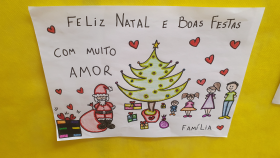 FELIZ NATAL E BOAS FESTAS
COM MUITO
AMOR
FAMÍLIA